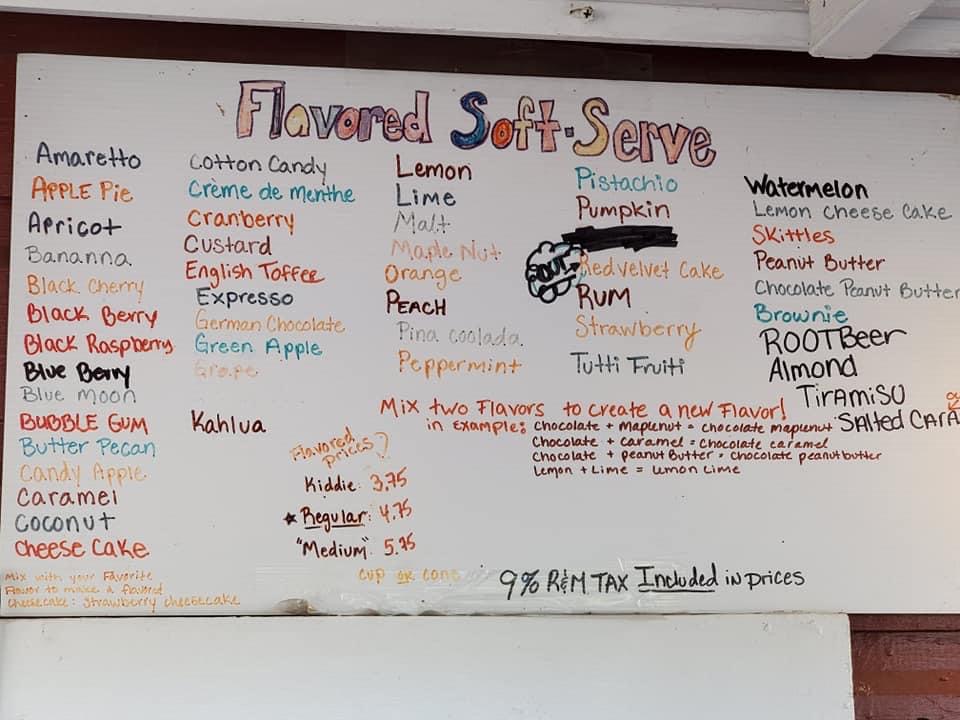 Flavored Soft-Serve
Amaretto
APPLE Pie
Apricot
Bananna
Black Cherry
Black Berry
Black Raspberry
Blue Berry
Blue Moon
BUBBLE GUM
Butter Pecan
Candy Apple
Caramel
Coconut
Cheese Cake
Mix with your Favorite
Flavor to make a flavored
Cheesecake: Strawberry cheesecake
Cotton Candy
Crème de menthe
Cranberry
Custard
English Toffee
Expresso
German Chocolate
Green Apple
Grape
Kahlua
Lemon
Lime
Malt
Maple Nut
Orange
PEACH
Pina coolada
Peppermint
Pistachio
Pumpkin
OUT
Red velvet Cake
RUM
Strawberry
Tutti Fruiti
Watermelon
Lemon Cheese Cake
Skittles
Peanut Butter
Chocolate Peanut Butter
Brownie
ROOTBeer
Almond
TiRAMiSU
SAlted CARA
Mix two Flavors to create a new Flavor!
in example: chocolate + maplenut = chocolate maplenut
Chocolate + caramel = chocolate caramel
Chocolate + peanut Butter = chocolate peanutbutter
Lemon + Lime = Lemon Lime
Flavored
prices
Kiddie: 3.75
★ Regular: 4.75
"Medium" 5.75
cup or cone
9% R&M TAX Included in prices